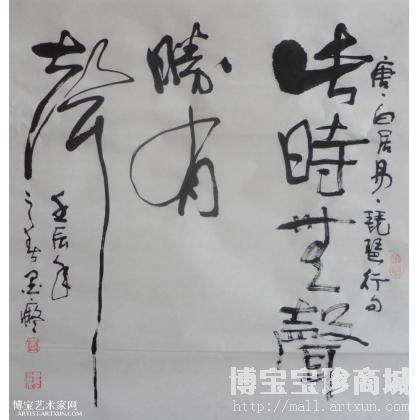 唐·白居易·琵琶行句
此時無聲
勝有
聲
壬辰年
之春墨癡
博宝艺术家网
ARTIST.ARTXUN.COM
博宝宝珍商城
http://mall.artxun.com